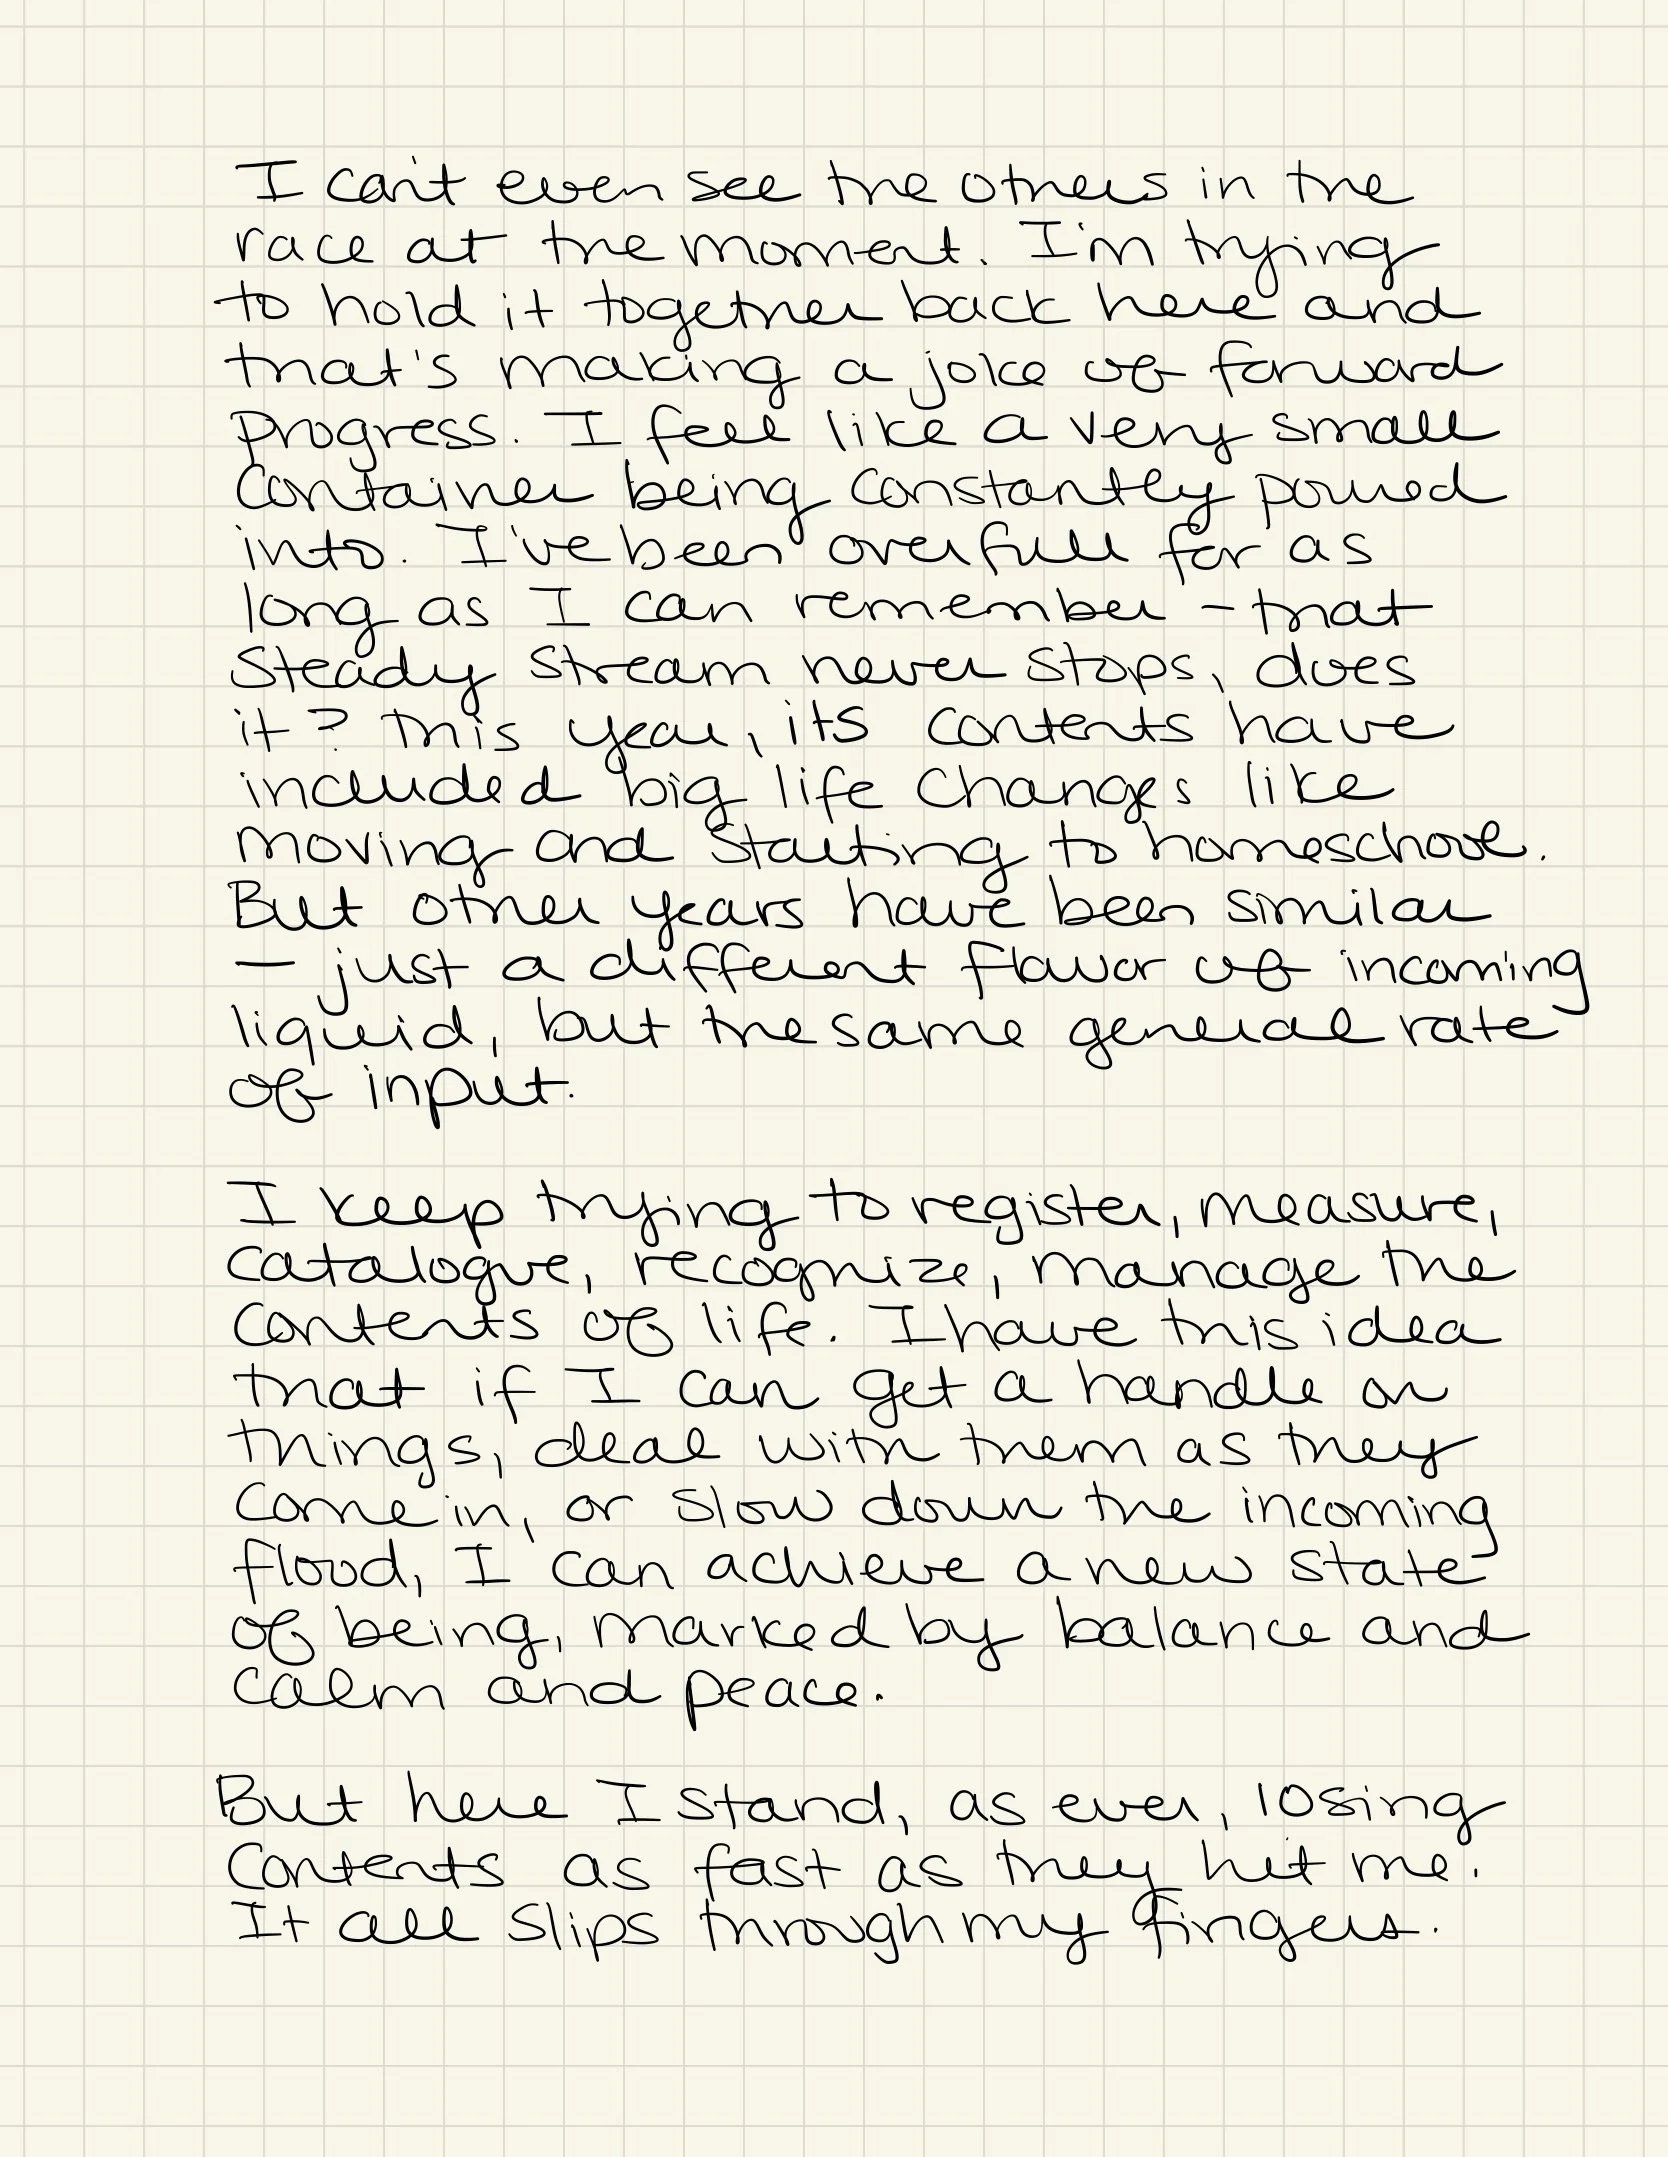 I can't even see the others in the
race at the moment. I'm trying
to hold it together back here and
that's making a joke of forward
progress. I feel like a very small
container being constantly poured
into. I've been overfull for as
long as I can remember - that
steady stream never stops, does
it? This year, its contents have
included big life changes like
moving and starting to homeschool.
But other years have been similar
— just a different flavor of incoming
liquid, but the same general rate
of input.

I keep trying to register, measure,
catalogue, recognize, manage the
contents of life. I have this idea
that if I can get a handle on
things, deal with them as they
come in, or slow down the incoming
flood, I can achieve a new state
of being, marked by balance and
calm and peace.

But here I stand, as ever, losing
contents as fast as they hit me.
It all slips through my fingers.